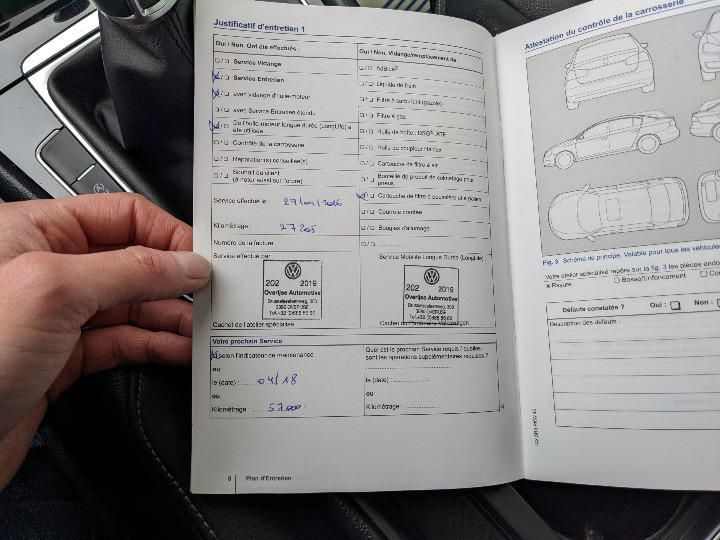 Justificatif d'entretien 1
Oui / Non. Ont été effectués :
☐/☐ Service Vidange
☒/☐ Service Entretien
☒/☐ avec vidange d'huile-moteur
☐/☐ avec Service Entretien étendu
☒/☐ De l'huile-moteur longue durée (LongLife) a
été utilisée
☐/☐ Contrôle de la carrosserie
☐/☐ Réparation(s) conseillée(s)
☐/☐ Souhait du client
(à noter aussi sur l'ordre)
Oui / Non. Vidange/remplacement de :
☐/☐ AdBlue®
☐/☐ Liquide de frein
☐/☐ Filtre à carburant (gazole)
☐/☐ Filtre à gaz
☐/☐ Huile de boîte : DSG®, ATF
☐/☐ Huile du coupleur Haldex
☐/☐ Cartouche de filtre à air
☐/☐ Bouteille de produit de colmatage pour
pneus
☒/☐ Cartouche de filtre à poussière et à pollen
☐/☐ Courroie crantée
☐/☐ Bougies d'allumage
☐/☐
Service effectué le :
Kilométrage : 27205
Numéro de la facture
Service effectué par
202 2019
Overijse Automotive
Brusselsesteenweg, 303
3090 OVERIJSE
Cachet de l'atelier spécialisé
Service Mobilité Longue Durée (LongLife)
202 2019
Overijse Automotive
Brusselsesteenweg, 303
3090 OVERIJSE
Cachet du Partenaire Volkswagen
Votre prochain Service
selon l'indicateur de maintenance
ou
le (date) : 04/18
ou
Kilométrage : 57.000
Quel est le prochain Service requis / quelles
sont les opérations supplémentaires requises ?
le (date) :
ou
Kilométrage :
8 Plan d'Entretien
Attestation du contrôle de la carrosserie
Fig. 3 Schéma de principe. Valable pour tous les véhicules
Votre atelier spécialisé repère sur la fig. 3 les pièces endo
× Rayure ☐ Bosse/Enfoncement
Défauts constatés ? Oui : ☐ Non :
Description des défauts :